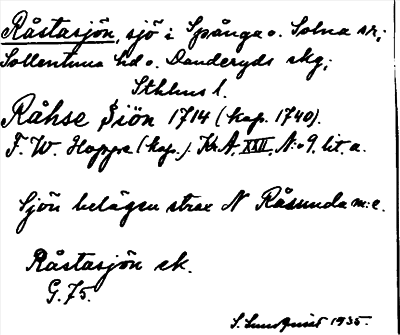 Råstasjön, sjö i Spånga o. Solna sn;
Sollentuna hd o. Danderyds skg;
Sthlms l.
Råhse Siön 1714 (kop. 1740).
F. W. Hoppe (kop.). Kr.A. XXII. N:o 9. lit. a.
Sjön belägen strax N Råsunda m:e.
Råstasjön sk.
G. 75.
S. Lundquist 1935.